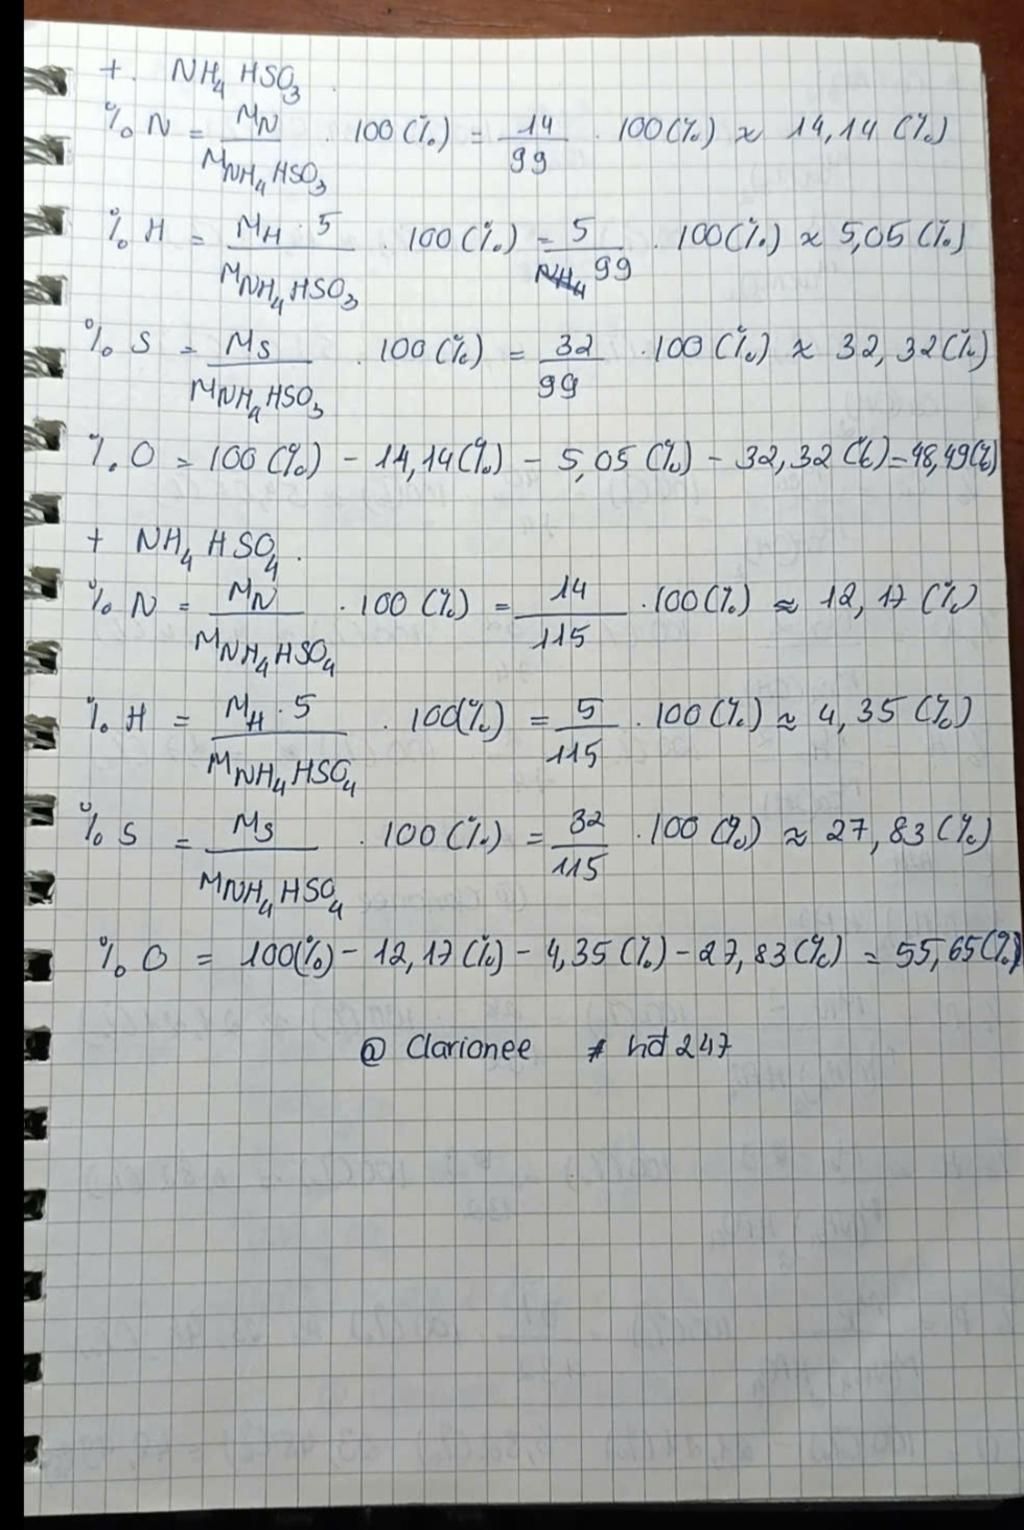 +. NH₄HSO₃.
% N = M_N / M_NH₄HSO₃ · 100 (%) = 14/99 · 100 (%) ≈ 14,14 (%)
% H = M_H · 5 / M_NH₄HSO₃ · 100 (%) = 5/99 · 100 (%) ≈ 5,05 (%)
% S = M_S / M_NH₄HSO₃ · 100 (%) = 32/99 · 100 (%) ≈ 32,32 (%)
% O = 100 (%) - 14,14 (%) - 5,05 (%) - 32,32 (%) = 48,49 (%)
+ NH₄HSO₄.
% N = M_N / M_NH₄HSO₄ · 100 (%) = 14/115 · 100 (%) ≈ 12,17 (%)
% H = M_H · 5 / M_NH₄HSO₄ · 100 (%) = 5/115 · 100 (%) ≈ 4,35 (%)
% S = M_S / M_NH₄HSO₄ · 100 (%) = 32/115 · 100 (%) ≈ 27,83 (%)
% O = 100 (%) - 12,17 (%) - 4,35 (%) - 27,83 (%) = 55,65 (%)
@ Clarionee # hđ247